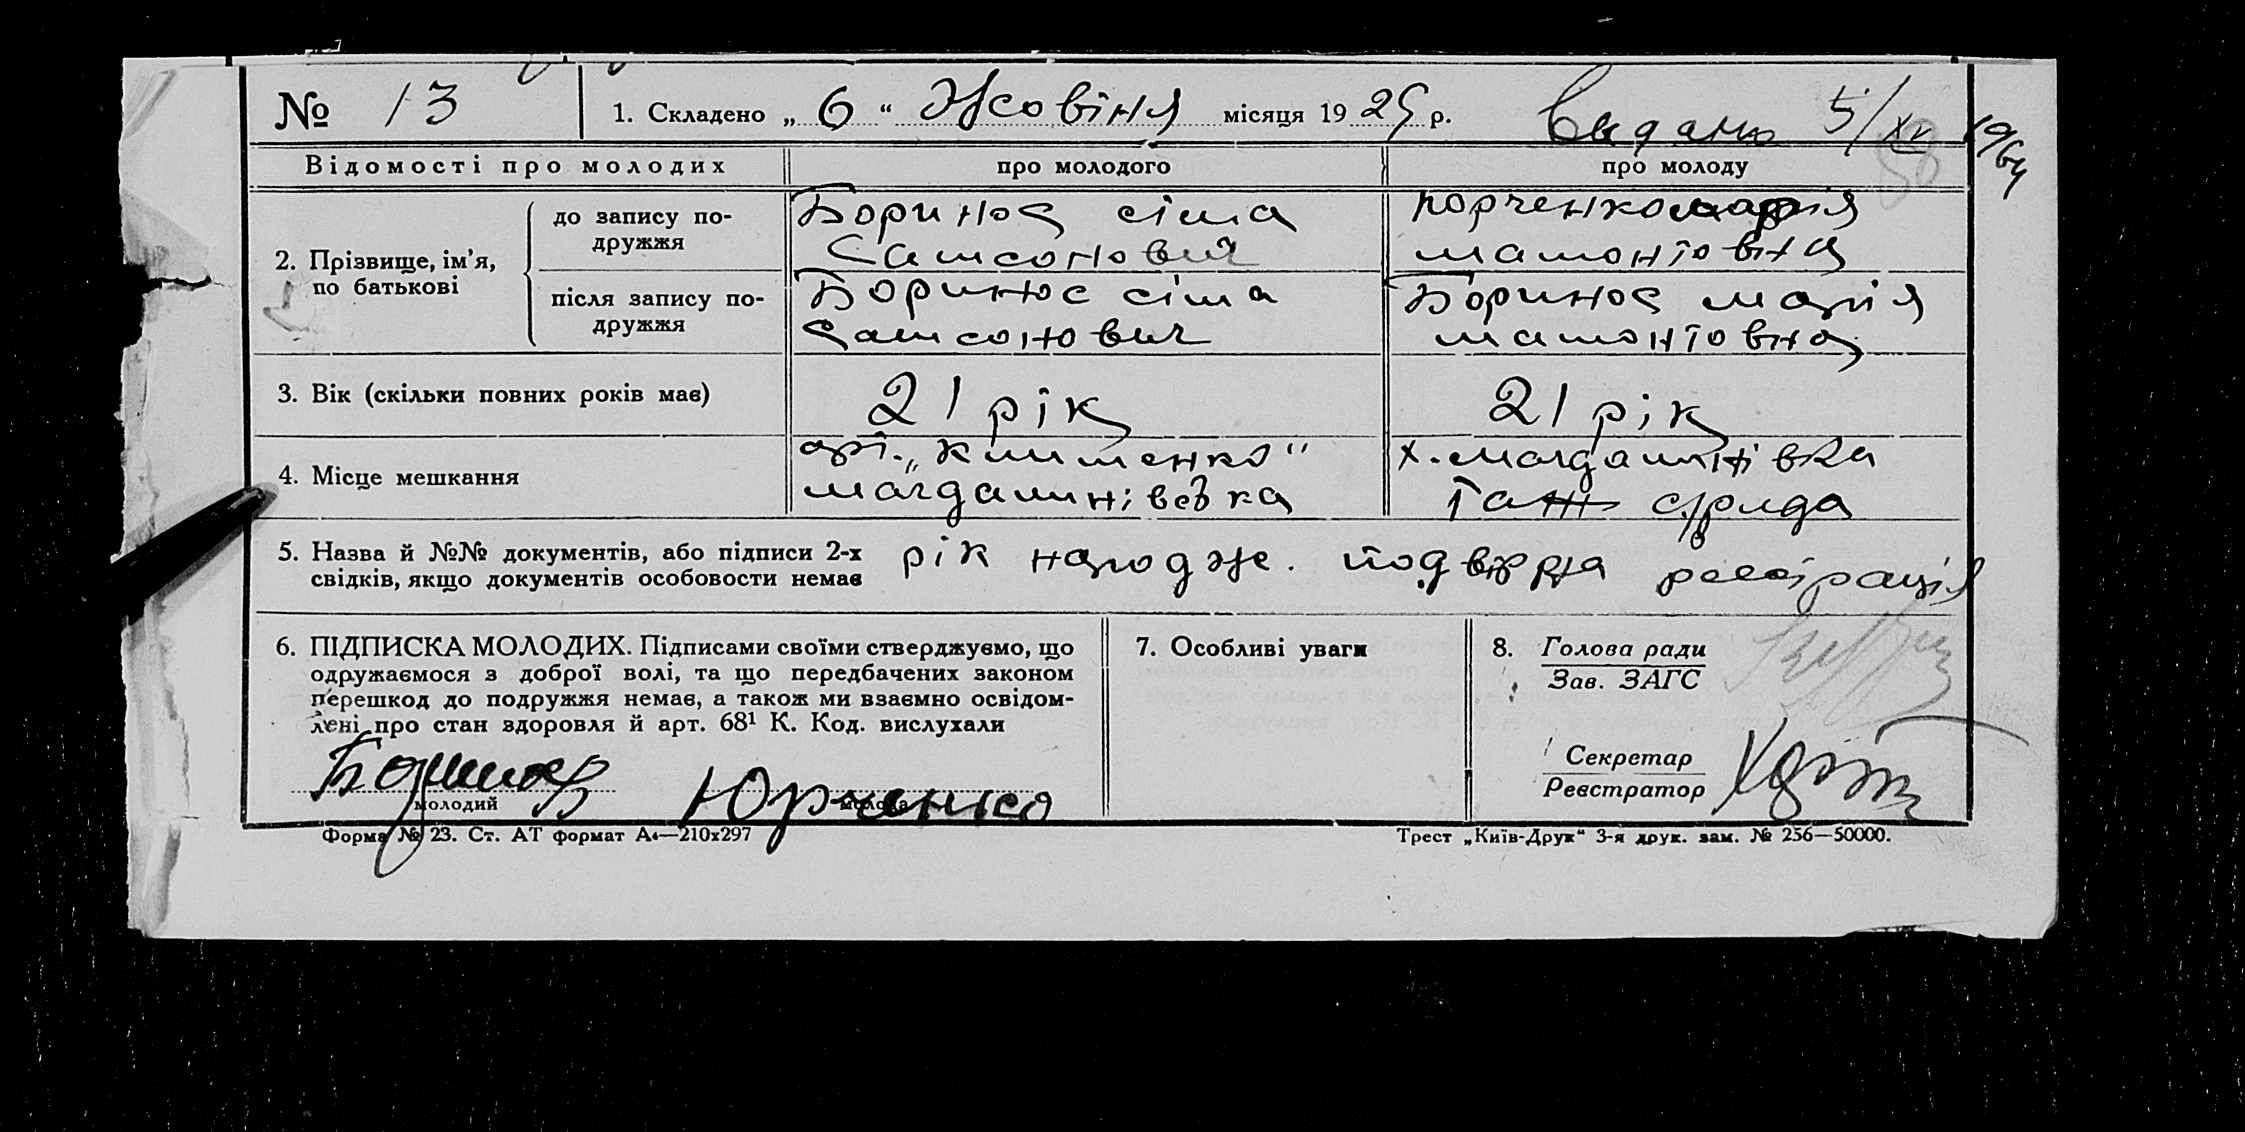 № 13 1. Складено „ 6 “ Жовтня місяця 19 29 р. 5/XII 1964
Відомості про молодих про молодого про молоду
2. Прізвище, ім'я, по батькові
до запису по-
дружжя
Боринос сіма
Самсонович
Юрченко марія
мамонтовна
після запису по-
дружжя
Боринос сіма
Самсонович
Боринос марія
мамонтовна
3. Вік (скільки повних років має) 21 рік 21 рік
4. Місце мешкання
арт. „
х. магдалинівка
5. Назва й №№ документів, або підписи 2-х
свідків, якщо документів особовости немає
рік народже.
6. ПІДПИСКА МОЛОДИХ. Підписами своїми стверджуємо, що
одружаємося з доброї волі, та що передбачених законом
перешкод до подружжя немає, а також ми взаємно освідом-
лені про стан здоровля й арт. 68¹ К. Код. вислухали
молодий
Юрченко
молода
7. Особливі уваги
8. Голова ради
Зав. ЗАГС
Секретар
Реєстратор
Форма № 23. Ст. АТ формат А₄—210х297
Трест „Київ-Друк“ 3-я друк. зам. № 256—50000.